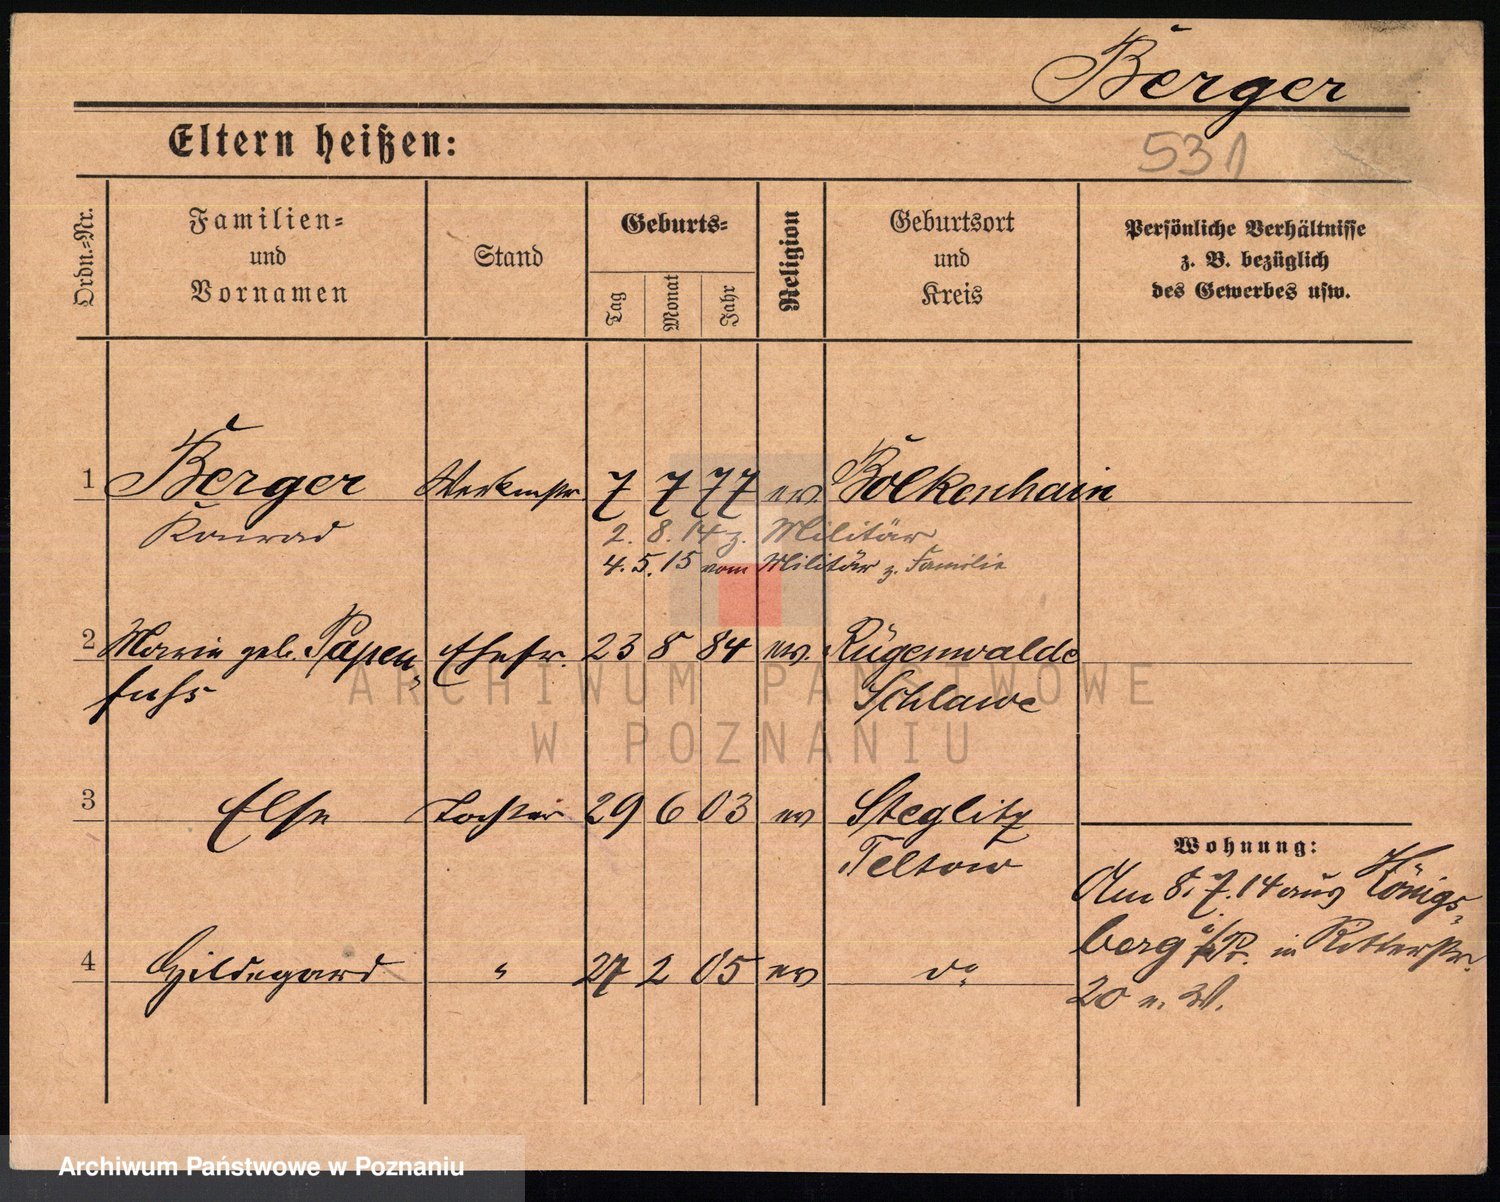 Berger
Eltern heißen:
531
Ordn.=Nr.
Familien=
und
Vornamen
Stand
Geburts=
Tag
Monat
Jahr
Religion
Geburtsort
und
Kreis
Persönliche Verhältnisse
z. B. bezüglich
des Gewerbes usw.
1 Berger Werkmstr. 7 7 77 ev. Bolkenhain
Konrad
2. 8. 14 z. Militär
4. 5. 15 vom Militär z. Familie
2 Marie geb. Papen= Ehefr. 23 8 84 ev. Rügenwalde
fuhs Schlawe
3 Else Tochter 29 6 03 ev Steglitz
Teltow
Wohnung:
Am 8. 7. 14 aus Königs=
berg i/Pr. in Ritterstr.
20 n. W.
4 Hildegard " 27 2 05 ev do
ARCHIWUM PAŃSTWOWE
W POZNANIU
Archiwum Państwowe w Poznaniu